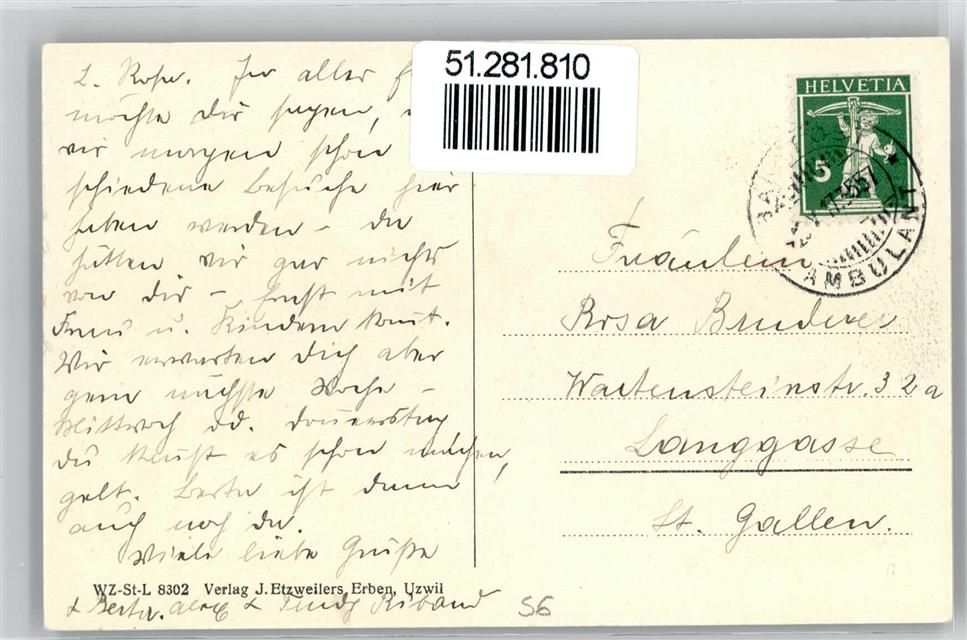 51.281.810
L. Rosa. In aller
möchte Dir sagen,
wir morgen schon
schiedene Besuche hier
haben werden – da
hätten wir gar nichts
von Dir – mit
Frau u. Kindern kommt.
Wir erwarten Dich aber
gern nächste Woche –
Mittwoch od. Donnerstag
Du kannst es schon machen,
gelt. Berta ist dann
auch noch da.
Viele liebe Grüße
WZ-St-L 8302 Verlag J. Etzweilers Erben, Uzwil
& Berta.
HELVETIA
5
AMBULANT
Fräulein
Rosa Bruderer
Wartensteinstr. 32a
Langgasse
St. Gallen.
56